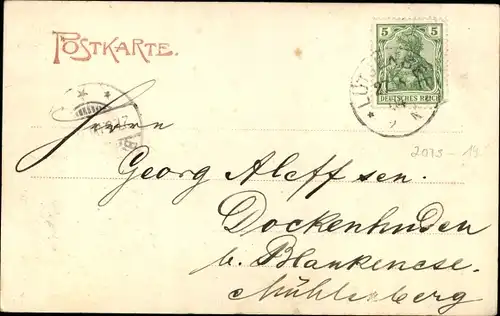 POSTKARTE.
5
DEUTSCHES REICH
Herrn
2075-19
Georg Aleff sen.
Dockenhuden
b. Blankenese.
Mühlenberg